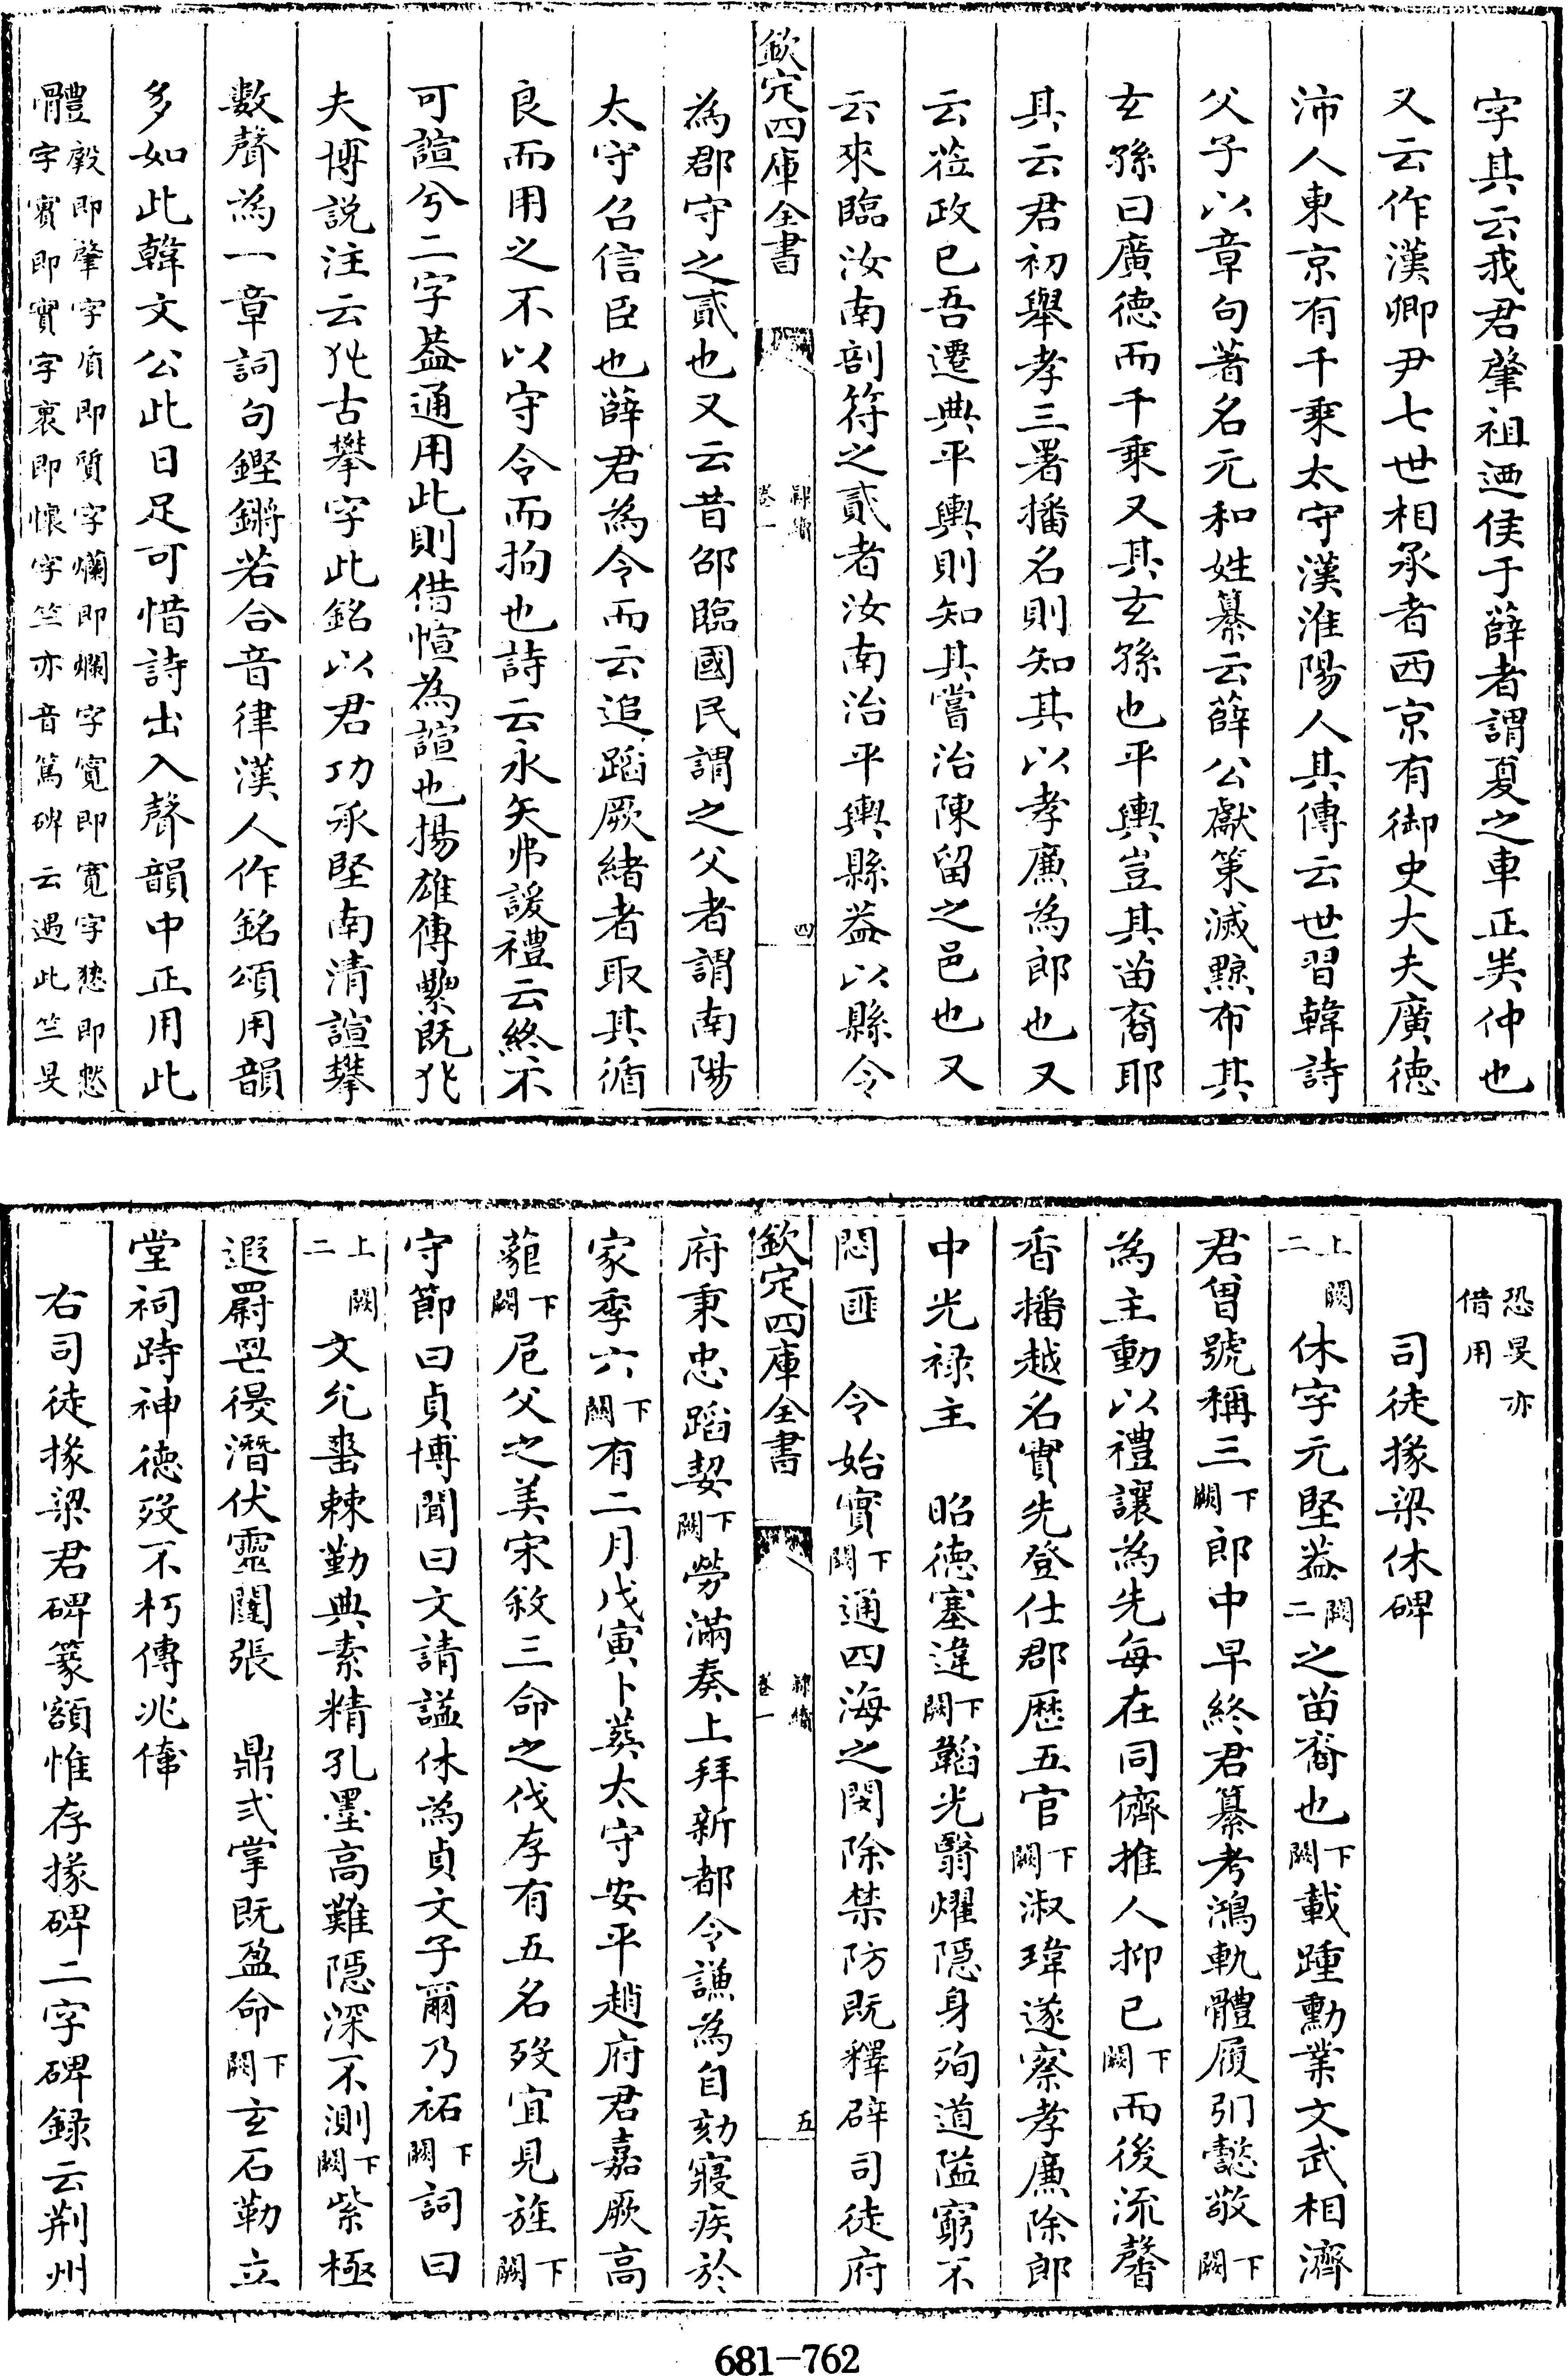 字其云我君肇祖迺侯于薛者謂夏之車正奚仲也
又云作漢卿尹七世相承者西京有御史大夫廣徳
沛人東京有千乘太守漢淮陽人其傳云世習韓詩
父子以章句著名元和姓纂云薛公獻策滅黥布其
玄孫曰廣徳而千乘又其玄孫也平輿豈其苗裔耶
其云君初舉孝三署播名則知其以孝廉為郎也又
云蒞政巳吾遷典平輿則知其嘗治陳留之邑也又
云來臨汝南剖符之貳者汝南治平輿縣葢以縣令
欽定四庫全書
隸續
卷一
四
為郡守之貳也又云昔邵臨國民謂之父者謂南陽
太守召信臣也薛君為令而云追蹈厥緒者取其循
良而用之不以守令而拘也詩云永矢弗諼禮云終不
可諠兮二字葢通用此則借愃為諠也揚雄傳纍既𠬝
夫博説注云𠬝古攀字此銘以君功承堅南清諠攀
數聲為一章詞句鏗鏘若合音律漢人作銘頌用韻
多如此韓文公此日足可惜詩出入聲韻中正用此
體㲄即肇字貭即質字爛即爛字寛即寛字愗即愁
字賔即實字褱即懷字竺亦音篤碑云遇此竺旻
恐旻亦
借用
司徒掾梁休碑
上闕二休字元堅葢闕二之苗裔也下闕載踵勳業文武相濟
君曾號稱三下闕郎中早終君纂考鴻軌體履引懿敬下闕
為主動以禮讓為先每在同儕推人抑已下闕而後流馨
香播越名實先登仕郡歴五官下闕淑瑋遂察孝廉除郎
中光禄主　昭徳塞違下闕韜光翳燿隱身殉道隘窮不
悶匪　令始實下闕通四海之閔除禁防既釋辟司徒府
欽定四庫全書
隸續
卷一
五
府秉忠蹈㓞下闕勞滿奏上拜新都令謙為自劾寢疾於
家季六下闕有二月戊寅卜葬太守安平趙府君嘉厥高
蘢下闕尼父之美宋敘三命之伐存有五名歿宜見旌下闕
守節曰貞博聞曰文請謚休為貞文子爾乃祏下闕詞曰
上闕二文允嗇棘勤典素精孔墨高難隱深不測下闕紫極
遐罻罡㣪潛伏靈闈張　鼎弍掌既盈命下闕玄石勒立
堂祠跱神徳歿不朽傳兆億
右司徒掾梁君碑篆額惟存掾碑二字碑録云荆州
681-762